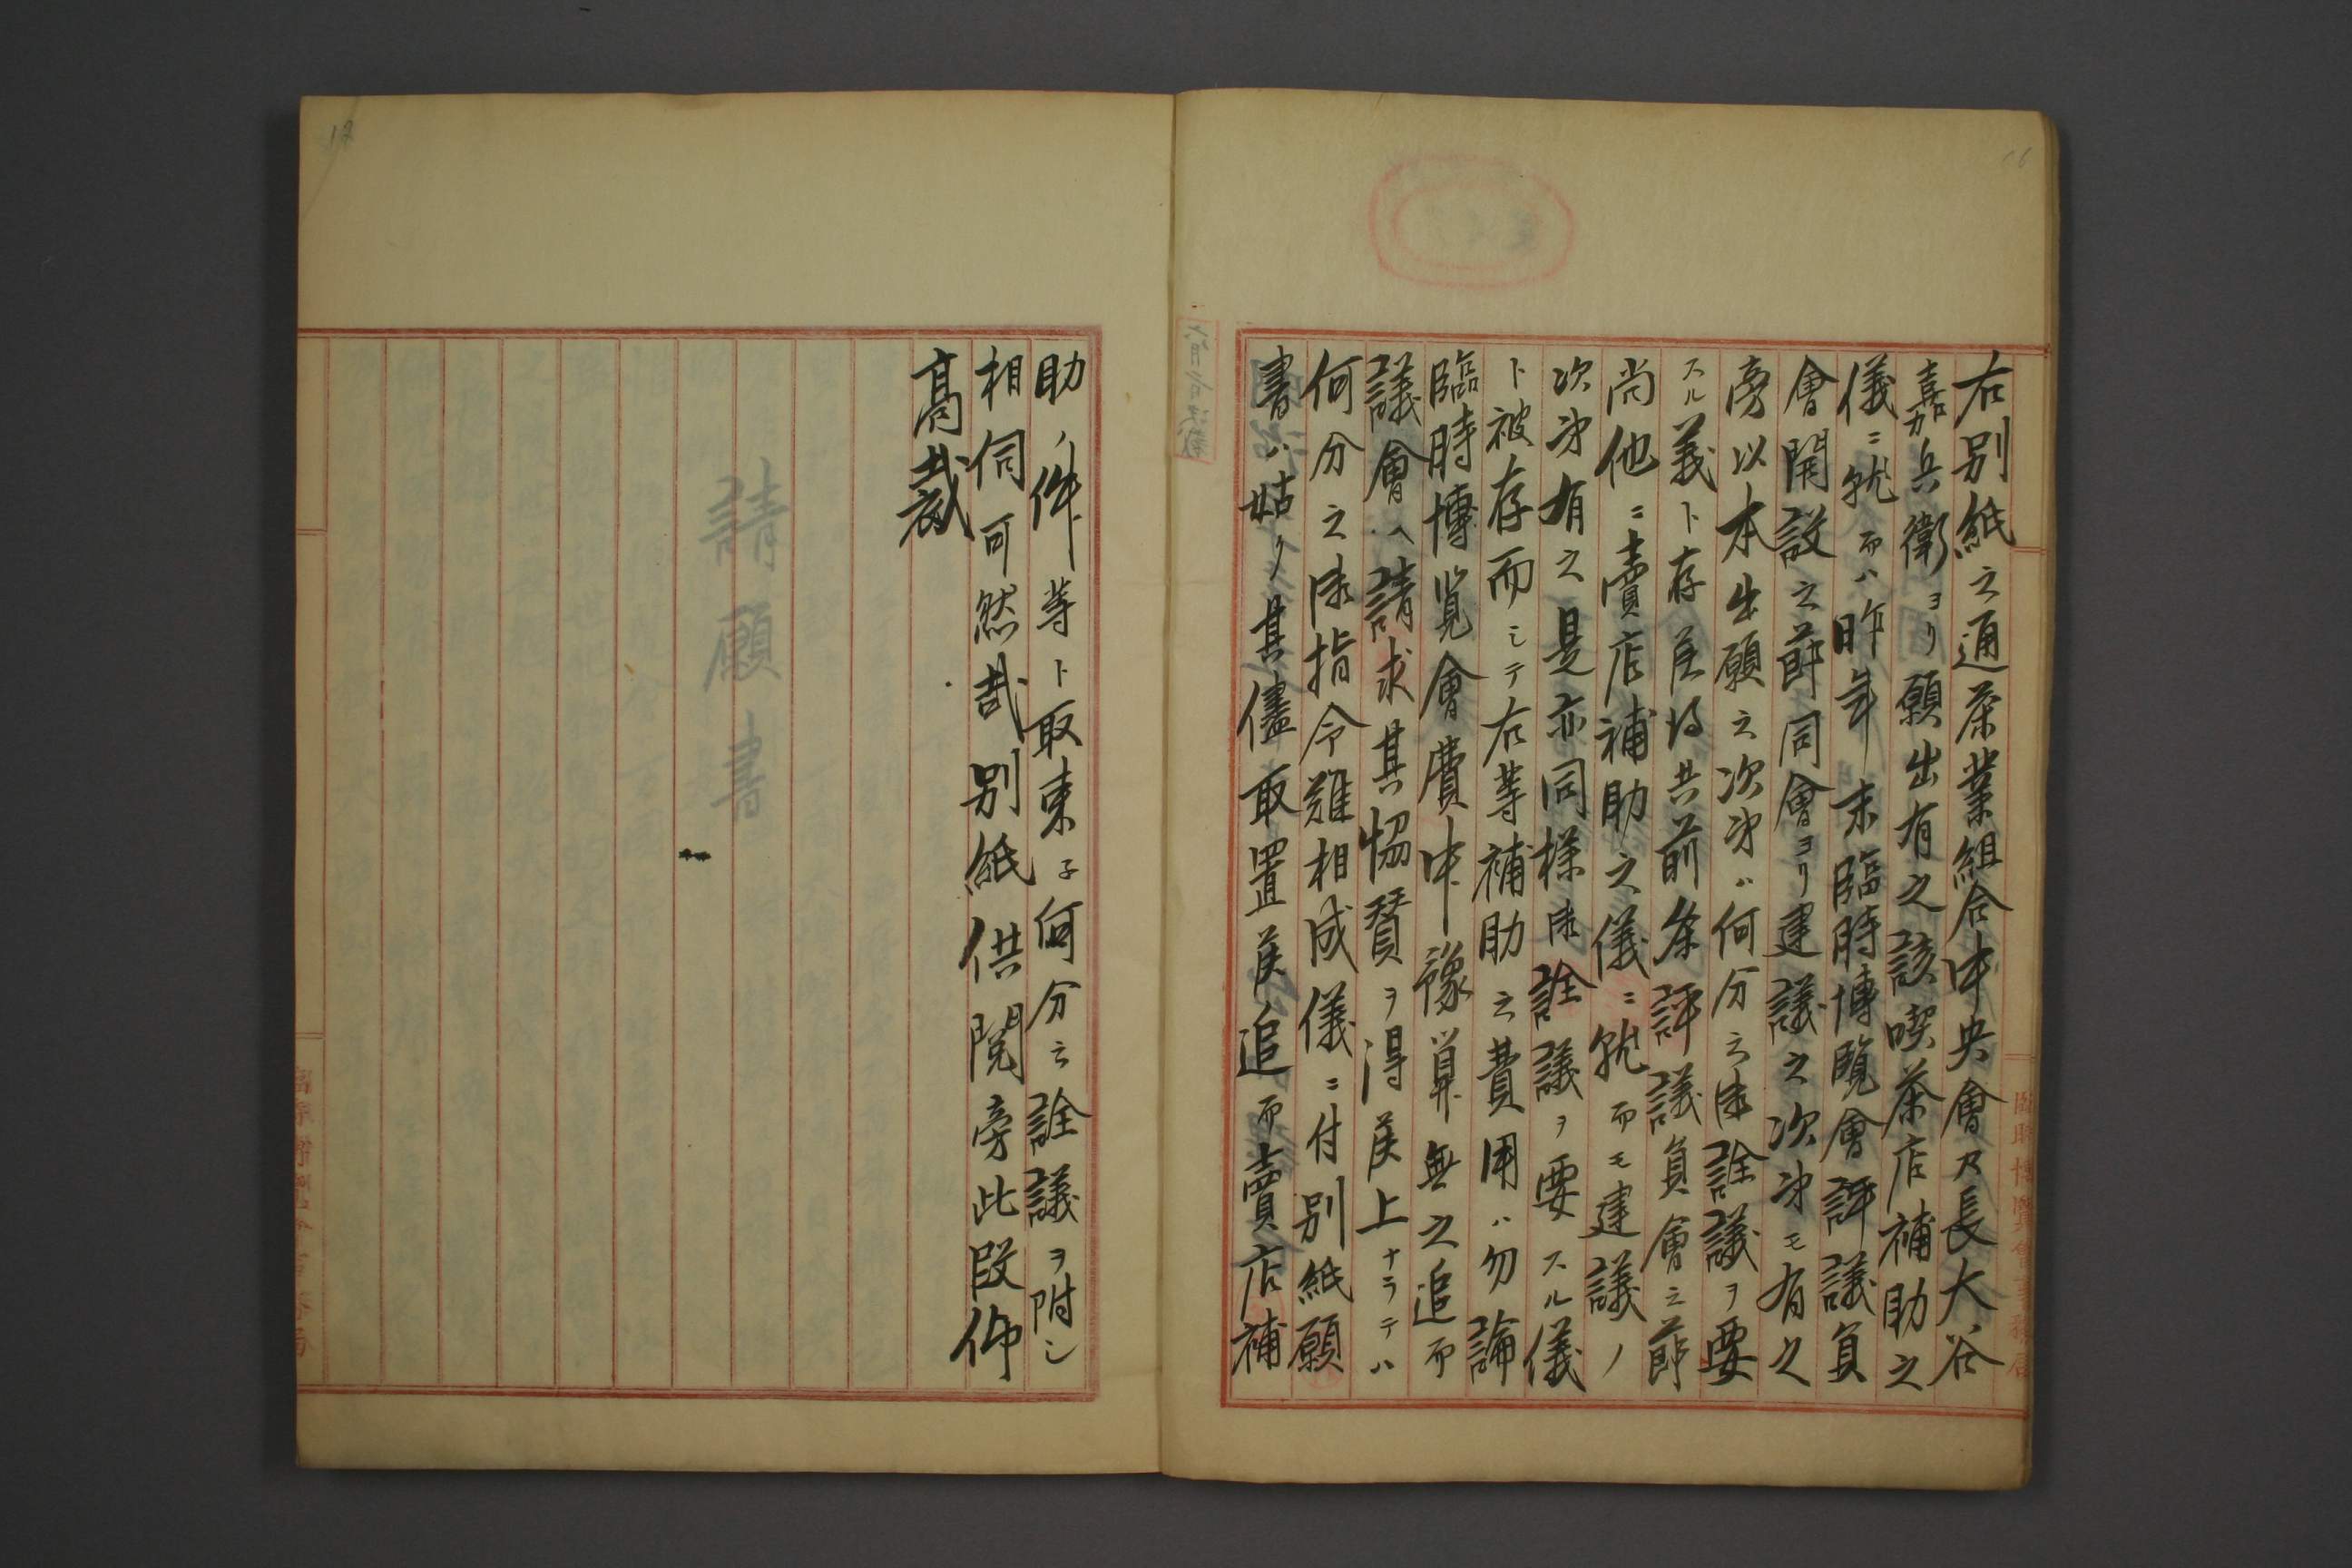 右別紙之通茶業組合中央會乃長大谷
嘉兵衛ヨリ願出有之該喫茶店補助之
儀ニ就而ハ昨年末臨時博覽會評議員
會開設之節同會ヨリ建議之次第モ有之
旁以本出願之次第ハ何分之御詮議ヲ要
スル義ト存候得共前条評議員會之節
尚他ニ賣店補助之儀ニ就而モ建議ノ
次第有之是亦同様御詮議ヲ要スル儀
ト被存而シテ右等補助之費用ハ勿論
臨時博覧會費中豫算無之追而
議會ヘ請求其恊賛ヲ得候上ナラテハ
何分之御指令難相成儀ニ付別紙願
書ハ姑ク其儘取置候追而賣店補
助ノ件等ト取束子何分之詮議ヲ附シ
相伺可然哉別紙供閲旁此段仰
高裁
請願書
臨時博覽會事務局